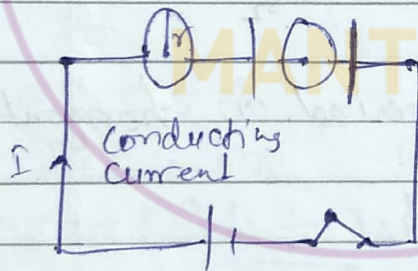 r
MANT
I
Conducting
Current